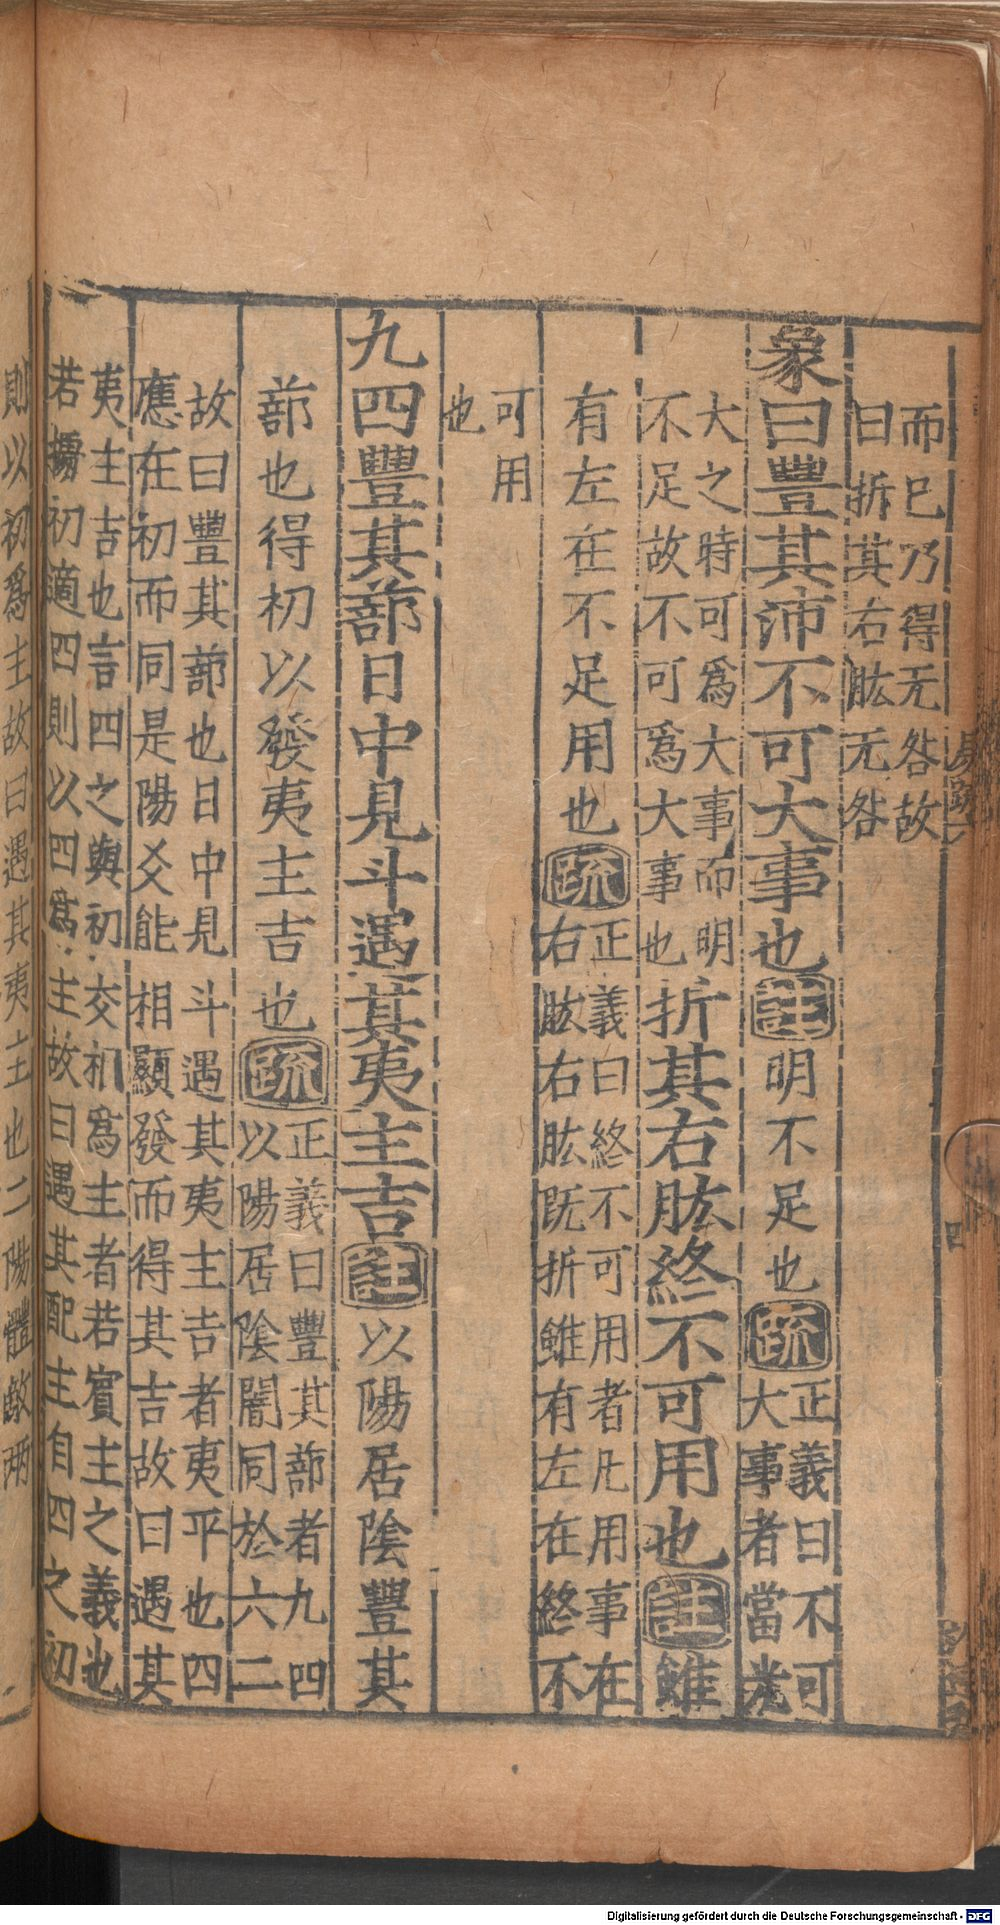 而已乃得无咎故
曰折其右肱无咎
象曰豐其沛不可大事也註明不足也疏正義曰不可
大事者當光
大之時可為大事而明
不足故不可爲大事也折其右肱終不可用也註雖
有左在不足用也疏正義曰終不可用者凡用事在
右肱右肱既折雖有左在終不
可用
也
九四豐其蔀日中見斗遇其夷主吉註以陽居陰豐其
蔀也得初以發夷主吉也疏正義曰豐其蔀者九四
以陽居陰闇同於六二
故曰豐其蔀也日中見斗遇其夷主吉者夷平也四
應在初而同是陽爻能相顯發而得其吉故曰遇其
夷主吉也言四之與初交相爲主者若賓主之義也
若據初適四則以四爲主故曰遇其配主自四之初
則以初爲主故曰遇其夷主也二陽體敵兩
四
Digitalisierung gefördert durch die Deutsche Forschungsgemeinschaft - DFG